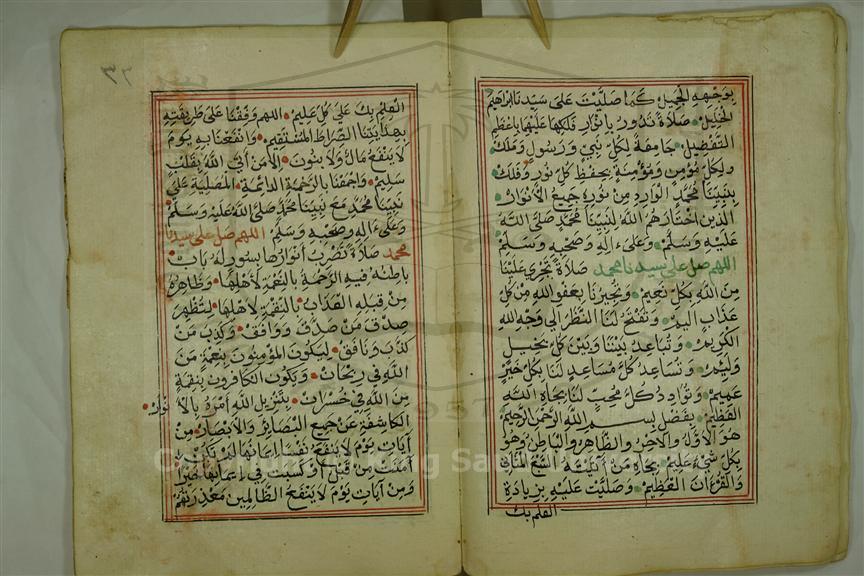 بوجهه الجميل كما صليت على سيدنا ابراهيم
الخليل صلاة ندور بانوار فلكها عليها باعظم
التفضيل جامعة لكل نبي ورسول وملك
ولكل مؤمن ومؤمنة بحفظ كل نور وفلك
بنبينا محمد الوارد من نوره جميع الانوار
الذين اختارهم الله لنبينا محمد صلى الله
عليه وسلم وعلى اله وصحبه وسلم
اللهم صل على سيدنا محمد صلاة تجري علينا
من الله بكل نعيم وتجيرنا بعفو الله من كل
عذاب اليم وتفتح لنا النظر الى وجه الله
الكريم وتباعد بيننا وبين كل بخيل
ولئيم وتساعد كل مساعد لنا بكل خير
عميم وتوادد كل محب لنا بجاه الله
العظيم بفضل بسم الله الرحمن الرحيم
هو الاول والاخر والظاهر والباطن وهو
بكل شيء عليم بجاه من اتيته السبع المثاني
والقرءان العظيم وصليت عليه بزيادة
العلم بك
٣٢
العلم بك على كل عليم اللهم وفقنا على طريقته
بهدايتنا الصراط المستقيم وانفعنا به يوم
لا ينفع مال ولا بنون الا من اتى الله بقلب
سليم واجمعنا بالرحمة الدائمة المصلية على
نبينا محمد مع نبينا محمد صلى الله عليه وسلم
وعلى ءاله وصحبه وسلم اللهم صل على سيدنا
محمد صلاة تضرب انوارها بسور له باب
باطنه فيه الرحمة بالنعمة لاهلها وظاهره
من قبله العذاب بالنقمة لاهلها لتظهر
صدق من صدق ووافق وكذب من
كذب ونافق ليكون المؤمنون بنعمة من
الله في ربحات ويكون الكافرون بنقمة
من الله في خسران بتنزيل الله امره بالانوار
الكاشفة عن جميع البصائر والابصار من
آيات يوم لا ينفع نفسا ايمانها لم تكن
آمنت من قبل أو كسبت في ايمانها خيرا
ومن آيات يوم لا ينفع الظالمين معذرتهم
1957
King Saud